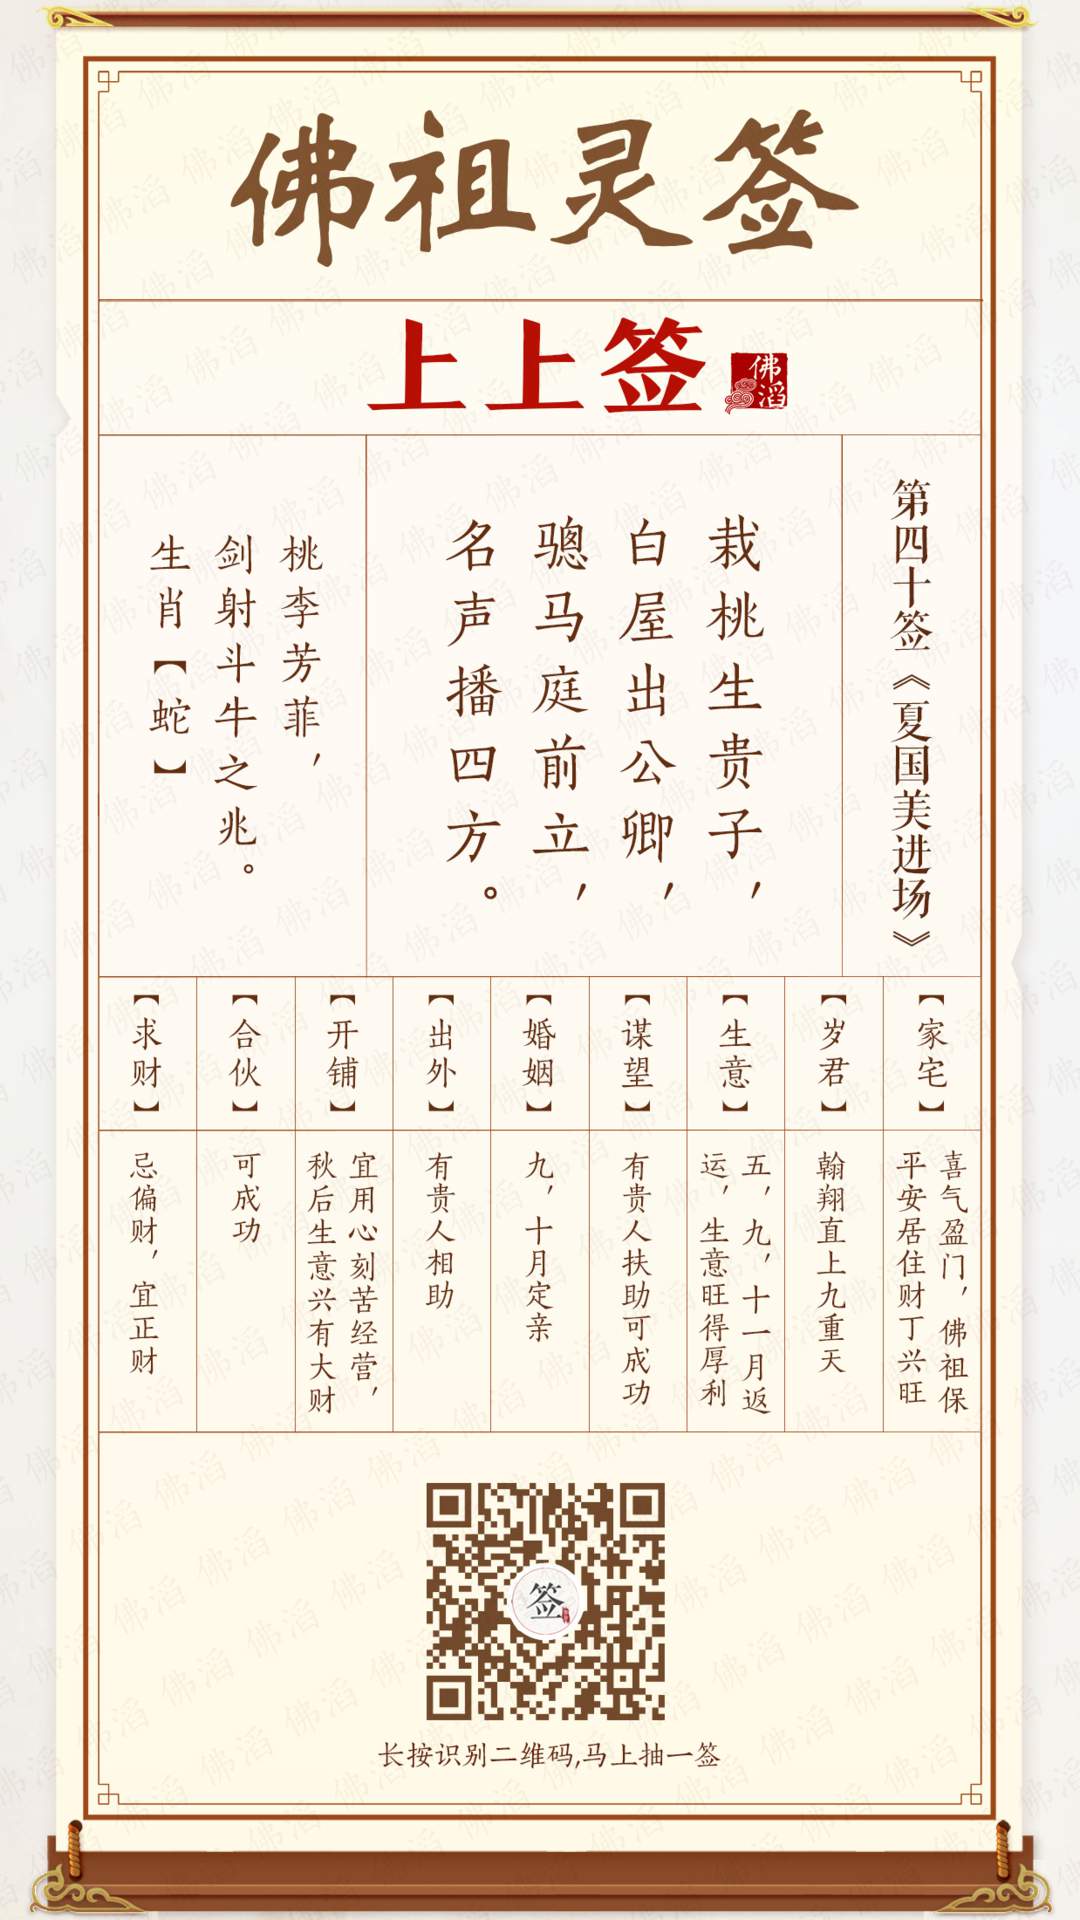 佛祖灵签
上上签
佛滔
第四十签《夏国美进场》
栽桃生贵子，
白屋出公卿，
骢马庭前立，
名声播四方。
桃李芳菲，
剑射斗牛之兆。
生肖【蛇】
【家宅】
喜气盈门，佛祖保
平安居住财丁兴旺
【岁君】
翰翔直上九重天
【生意】
五，九，十一月返
运，生意旺得厚利
【谋望】
有贵人扶助可成功
【婚姻】
九，十月定亲
【出外】
有贵人相助
【开铺】
宜用心刻苦经营，
秋后生意兴有大财
【合伙】
可成功
【求财】
忌偏财，宜正财
签
长按识别二维码,马上抽一签